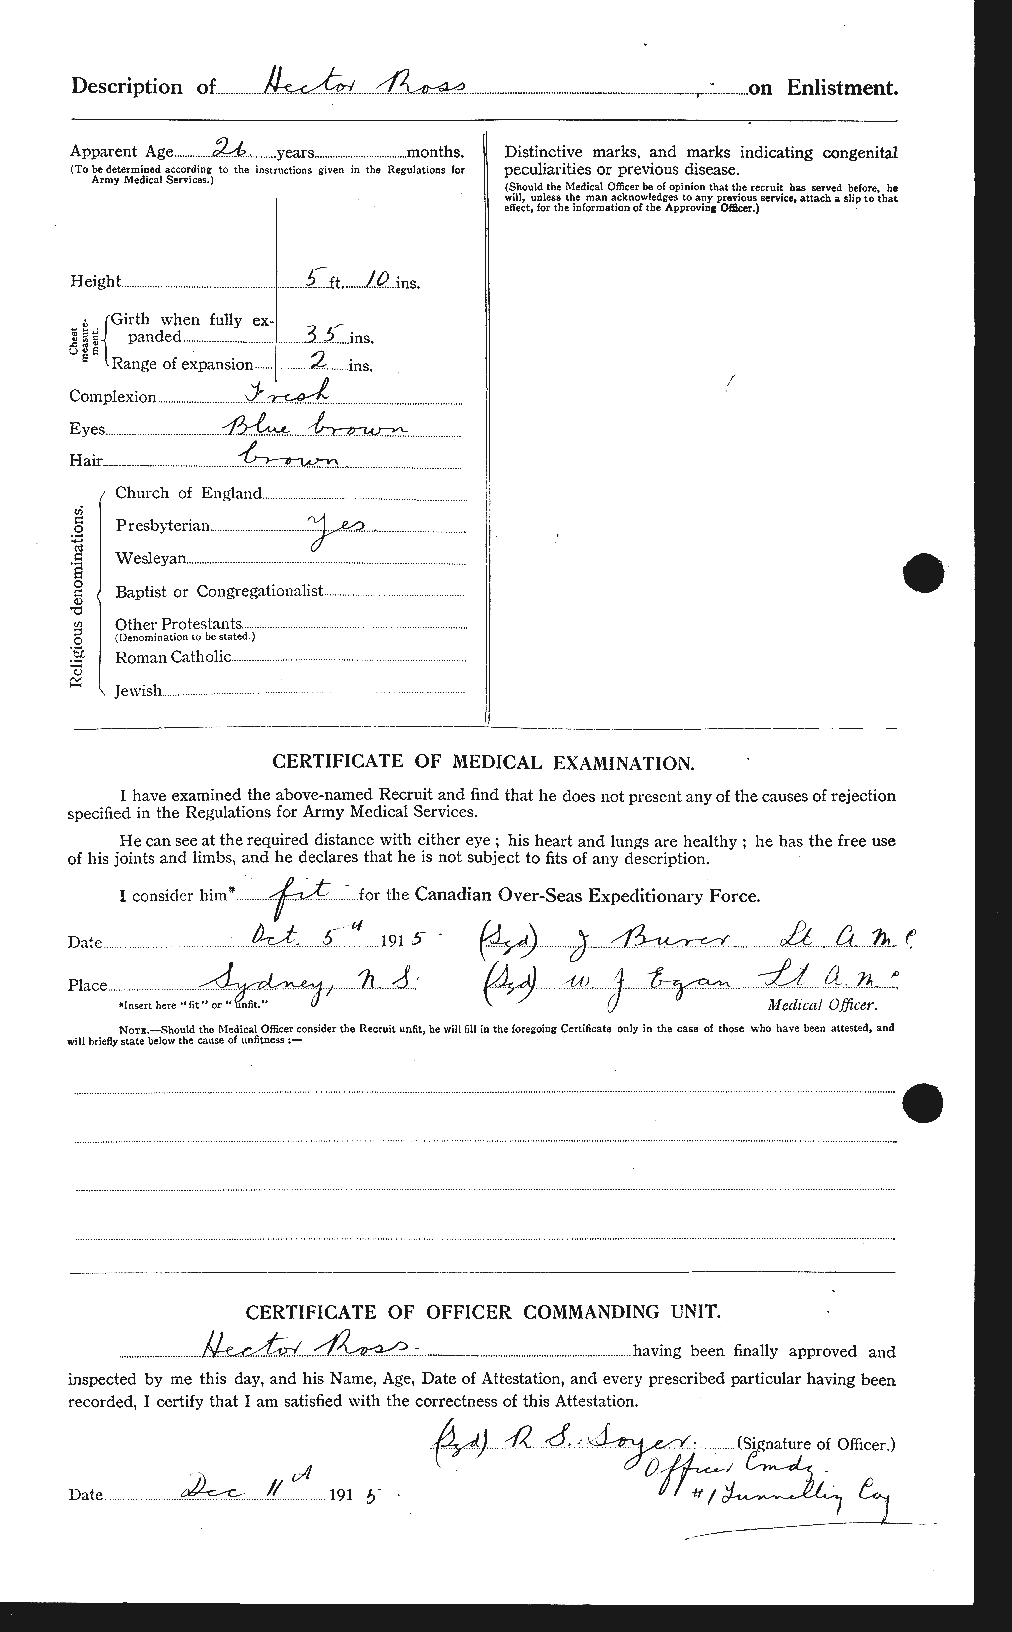 Description of Hector Ross on Enlistment.
Apparent Age 26 years months.
(To be determined according to the instructions given in the Regulations for
Army Medical Services.)
Height 5 ft. 10 ins.
Chest measure-ment.
Girth when fully ex-
panded 35 ins.
Range of expansion 2 ins.
Complexion Fresh
Eyes Blue brown
Hair brown
Religious denominations.
Church of England
Presbyterian Yes
Wesleyan
Baptist or Congregationalist
Other Protestants
(Denomination to be stated.)
Roman Catholic
Jewish
Distinctive marks, and marks indicating congenital
peculiarities or previous disease.
(Should the Medical Officer be of opinion that the recruit has served before, he
will, unless the man acknowledges to any previous service, attach a slip to that
effect, for the information of the Approving Officer.)
CERTIFICATE OF MEDICAL EXAMINATION.
I have examined the above-named Recruit and find that he does not present any of the causes of rejection
specified in the Regulations for Army Medical Services.
He can see at the required distance with either eye; his heart and lungs are healthy; he has the free use
of his joints and limbs, and he declares that he is not subject to fits of any description.
I consider him* fit for the Canadian Over-Seas Expeditionary Force.
Date Oct. 5th 1915 (Sgd) J Lt A.M.C
Place Sydney, N.S. (Sgd) W J Egan Lt A.M.C
*Insert here "fit" or "unfit."
Medical Officer.
NOTE.—Should the Medical Officer consider the Recruit unfit, he will fill in the foregoing Certificate only in the case of those who have been attested, and
will briefly state below the cause of unfitness:—
CERTIFICATE OF OFFICER COMMANDING UNIT.
Hector Ross having been finally approved and
inspected by me this day, and his Name, Age, Date of Attestation, and every prescribed particular having been
recorded, I certify that I am satisfied with the correctness of this Attestation.
(Sgd) R S. (Signature of Officer.)
Officer Cmdg.
Date Dec 11th 1915 #1 Tunnelling Coy